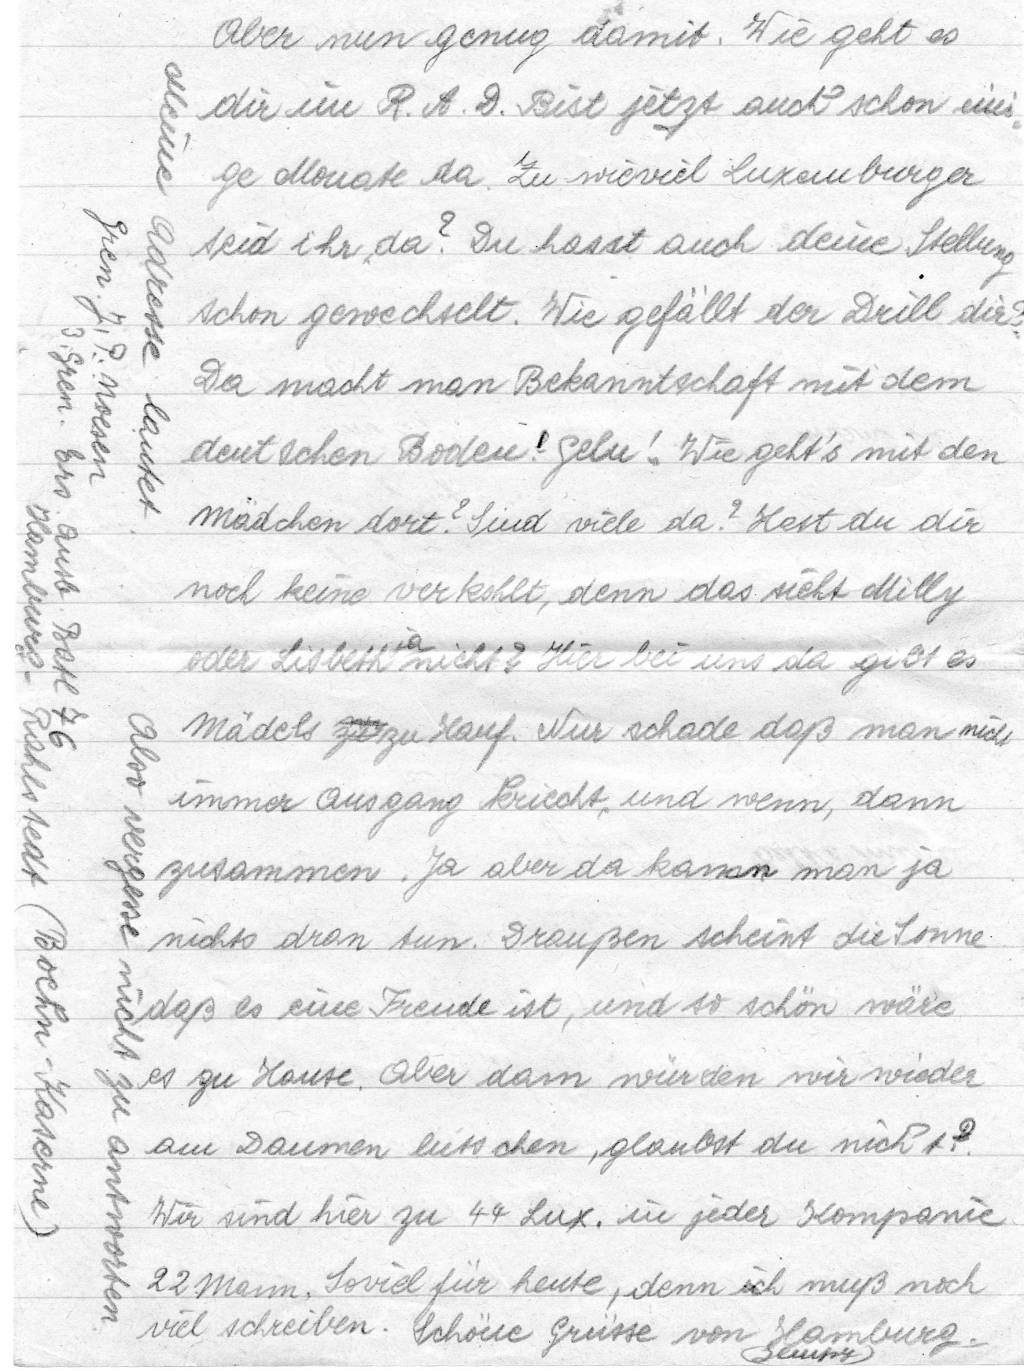 Aber nun genug damit. Wie geht es
dir im R. A. D. Bist jetzt auch schon eini-
ge Monate da. Zu wieviel Luxemburger
seid ihr da? Du hasst auch deine Stellung
schon gewechselt. Wie gefällt der Drill dir?
Da macht man Bekanntschaft mit dem
deutschen Boden! Gelu! Wie geht's mit den
Mädchen dort? Sind viele da? Hast du dir
noch keine verkohlt, denn das sieht Milly
oder Lisbeth ja nicht? Hier bei uns da gibt es
Mädels zu Hauf. Nur schade daß man nicht
immer Ausgang kriecht, und wenn, dann
zusammen. Ja aber da kann man ja
nichts dran tun. Draußen scheint die Sonne
daß es eine Freude ist, und so schön wäre
es zu Hause. Aber dann würden wir wieder
am Daumen lutschen, glaubst du nicht?
Wir sind hier zu 44 Lux. in jeder Kompanie
22 Mann. Soviel für heute, denn ich muß noch
viel schreiben. Schöne Grüsse von Hamburg.
Meine Adresse lautet.
Gren. J. P. Noesen
3. Gren. Ers. Ausb. Batl 76
Hamburg - Rahlstedt (Boehn-Kaserne)
Also vergesse nicht zu antworten